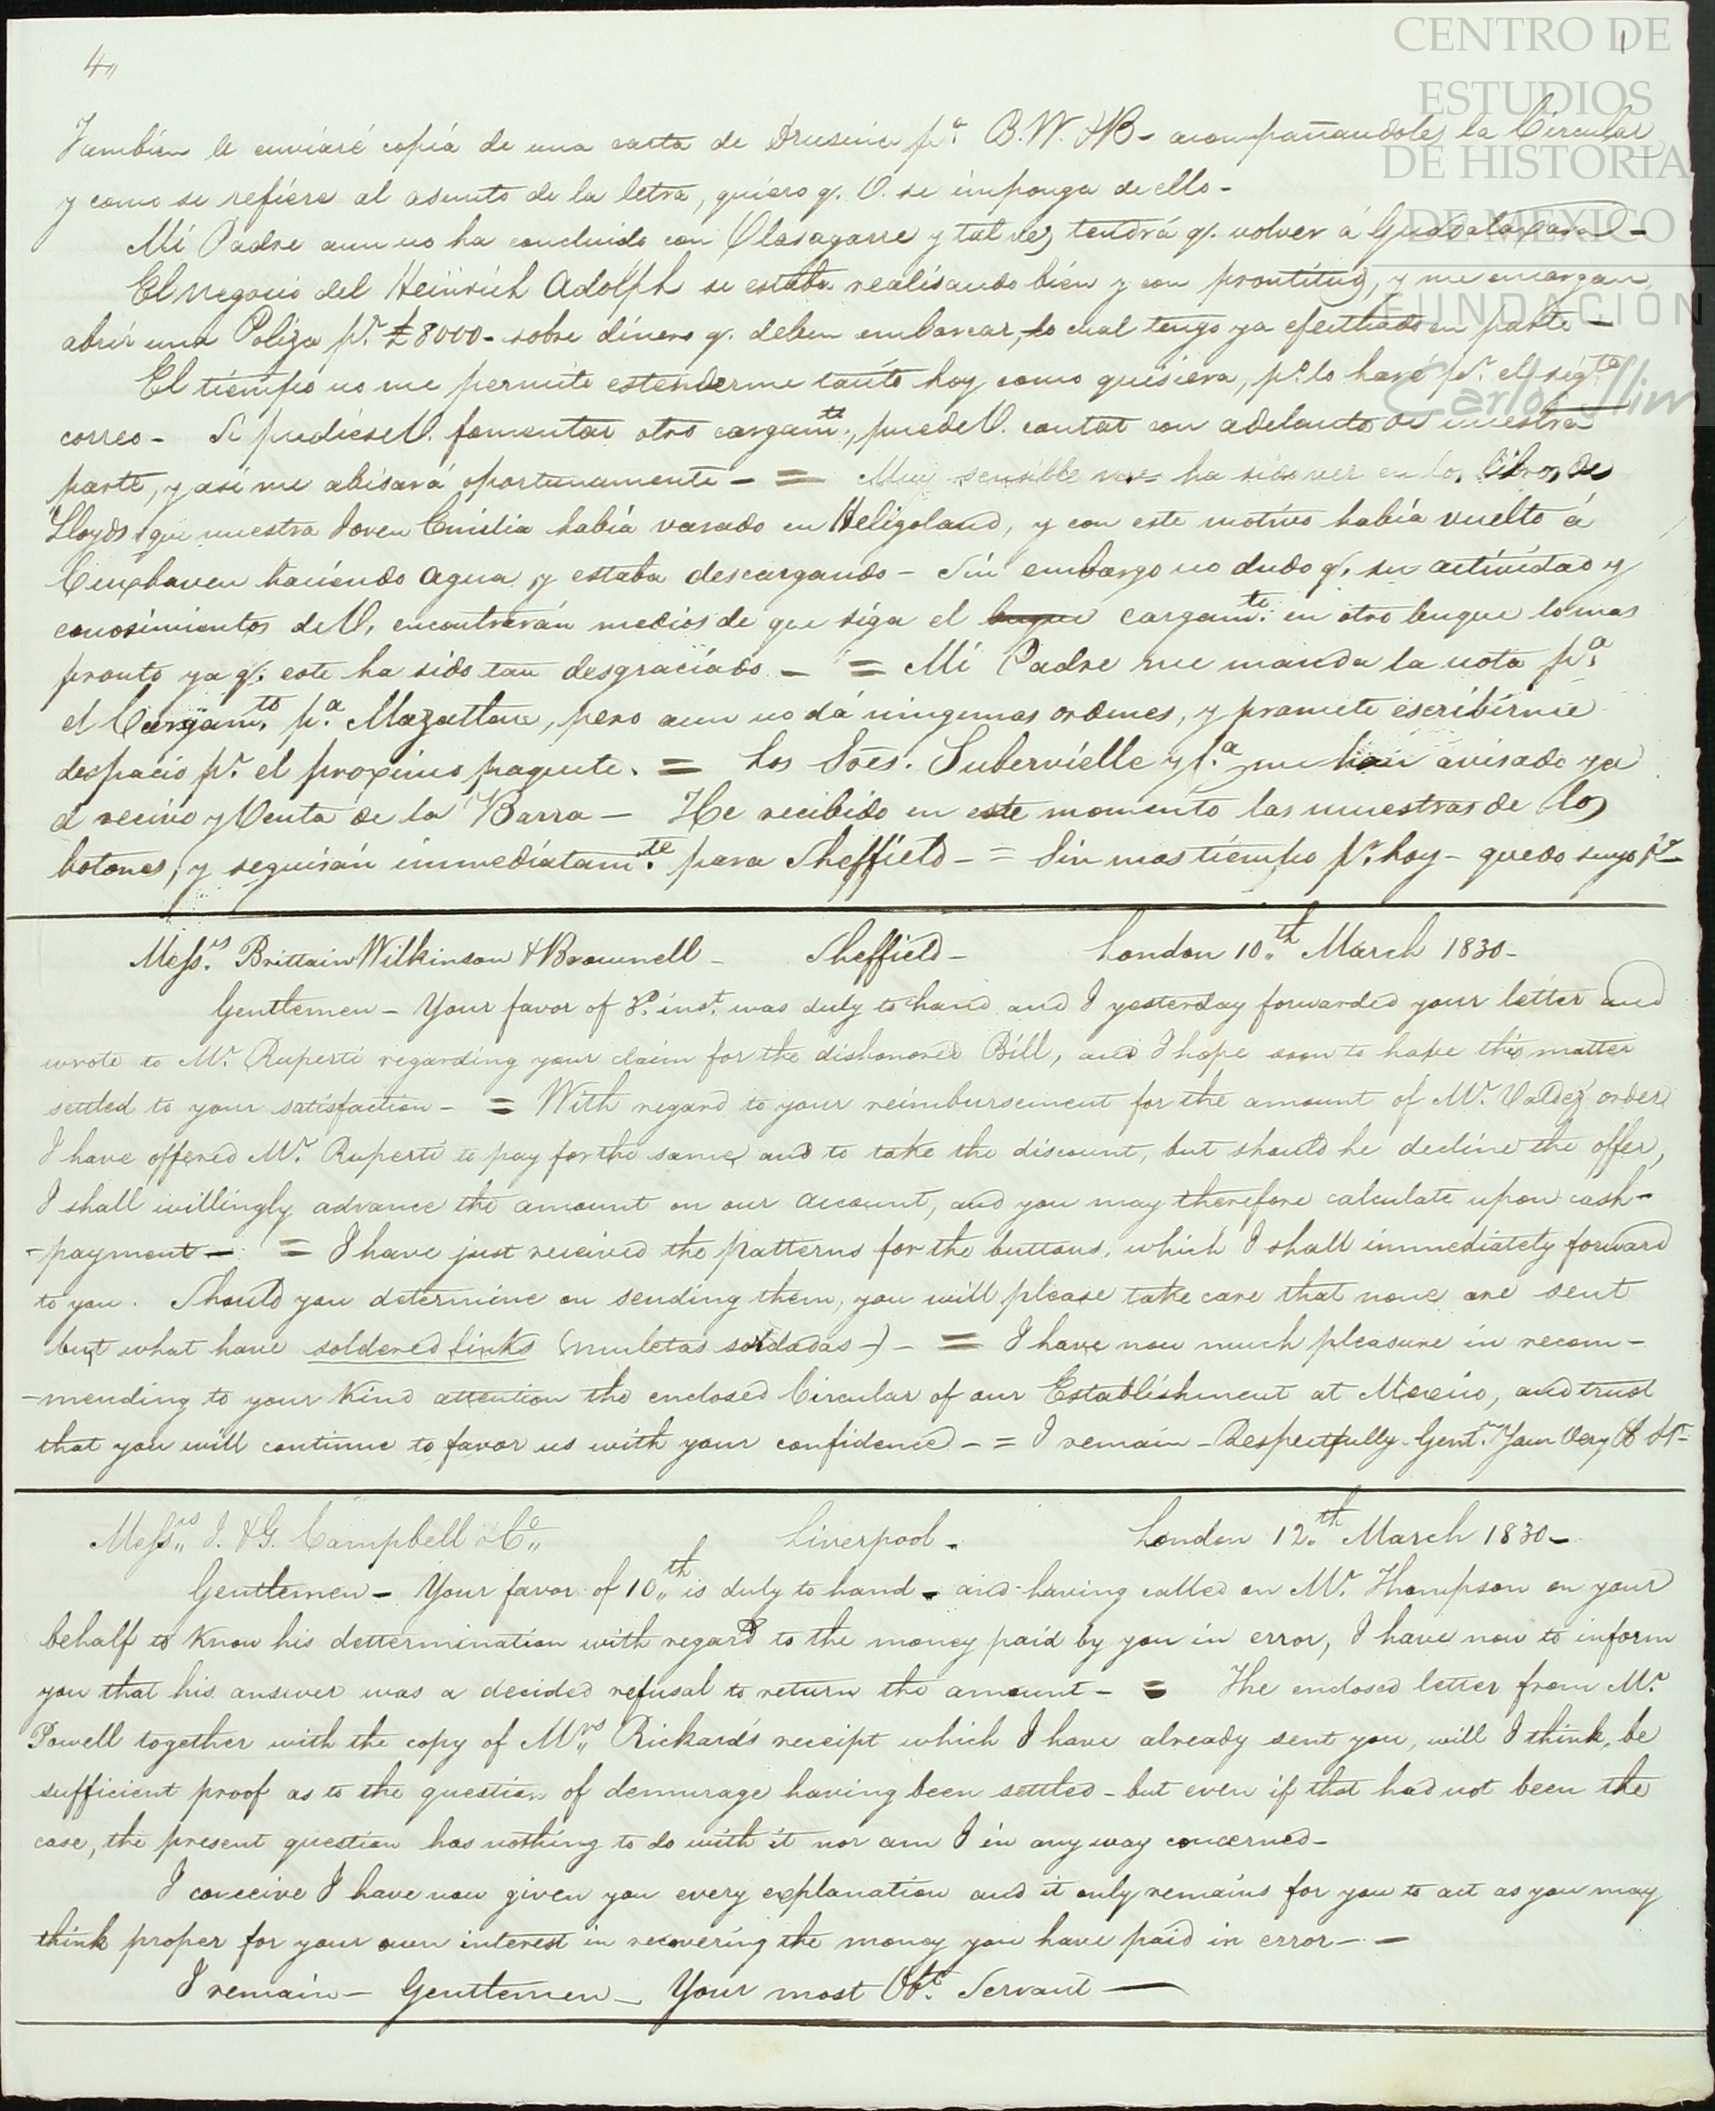 CENTRO DE
ESTUDIOS
DE HISTORIA
DE MEXICO
FUNDACIÓN
Carlos Slim
1
4,,
Tambien le enviaré copia de una carta de Drusina pª. B. W. & B - acompañandoles la Circular
y como se refiére al asunto de la letra, quiéro q/. V. se imponga de ello -
Mi Padre aun no ha concluido con Olasagarre y tal vez tendrá q/. volver á Guadalaxara -
El negocio del Heinrich Adolph se estaba realisando bién y con prontitud, y me encargan
abrir una Poliza pr. £8000 - sobre dinero q/. deben embarcar, lo cual tengo ya efectuado en parte -
El tiempo no me permite estenderme tanto hoy como quisiera, po. lo haré pr. el sigte.
correo - Si pudiése V. fomentar otro cargamte., puede V. contar con adelanto de nuestra
parte, y asi me abisará oportunamente - = Mui sensible me ha sido ver en los libros de
Lloyds que nuestra Joven Emilia había varado en Heligoland, y con este motivo había vuelto á
Cuxhaven haciendo agua y estaba descargando - Sin embargo no dudo q/. su actividad y
conosimientos de V. encontrarán medios de que siga el buque cargamte. en otro buque lo mas
pronto ya q/. este ha sido tan desgraciado - = Mi Padre me manda la nota pª.
el Cargamto. pª. Mazatlan, pero aun no dá ningunas ordenes, y promete escribirme
despacio pr. el proximo paquete. = Los Sres. Subervielle y Cª. me han avisado ya
el recivo y Venta de la Barra - He recibido en este momento las muestras de los
botones, y seguirán immediatamte. para Sheffield - = Sin mas tiémpo pr. hoy - quedo suyo &a -
Messrs. Brittain Wilkinson & Brownell - Sheffield - London 10,,th March 1830 -
Gentlemen - Your favor of 8º. inst. was duly to hand and I yesterday forwarded your letter and
wrote to Mr. Ruperti regarding your claim for the dishonored Bill, and I hope soon to have this matter
settled to your satisfaction - = With regard to your reimbursement for the amount of Mr. Valdez' order
I have offered Mr. Ruperti to pay for the same and to take the discount, but should he decline the offer,
I shall willingly advance the amount on our account, and you may therefore calculate upon cash -
- payment - = I have just received the patterns for the buttons, which I shall immediately forward
to you. Should you determine on sending them, you will please take care that none are sent
but what have soldered links (muletas soldadas -) - = I have now much pleasure in recom -
- mending to your kind attention the enclosed Circular of our Establishment at Mexico, and trust
that you will continue to favor us with your confidence - = I remain - Respectfully - Gentn. Your Very Ob St -
Messrs,, J. & G. Campbell & Co,, Liverpool - London 12.th March 1830 -
Gentlemen - Your favor of 10,,th is duly to hand - and having called on Mr. Thompson on your
behalf to know his dettermination with regard to the money paid by you in error, I have now to inform
you that his answer was a decided refusal to return the amount - = The enclosed letter from Mr.
Powell together with the copy of Mrs,, Rickards receipt which I have already sent you, will I think, be
sufficient proof as to the question of demurage having been settled - but even if that had not been the
case, the present question has nothing to do with it nor am I in any way concerned -
I conceive I have now given you every explanation and it only remains for you to act as you may
think proper for your own interest in recovering the money you have paid in error - -
I remain - Gentlemen - Your most Obt. Servant -